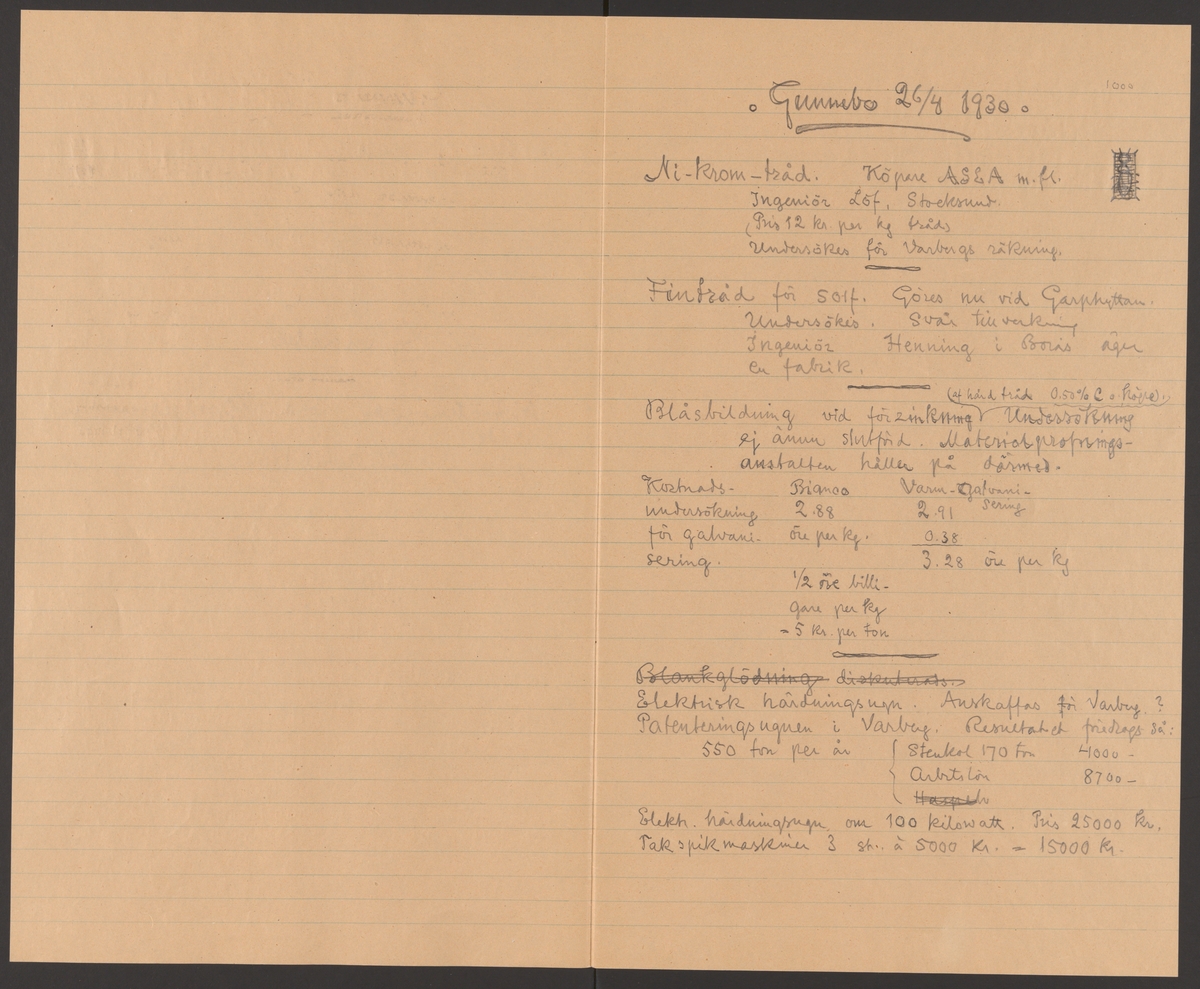 1000
Gunnebo 26/4 1930
Ni-krom-tråd. Köpare ASEA m.fl.
Ingeniör Löf, Stocksund.
(Pris 12 kr. per kg tråd)
Undersökes för Varbergs räkning.
Fintråd för solf. Göres nu vid Garphyttan.
Undersökes. Svår tillverkning
Ingeniör Henning i Borås äger
en fabrik.
(af hård tråd 0.50% C o. högre).
Blåsbildning vid förzinkning Undersökning
ej ännu slutförd. Materialprofnings-
anstalten håller på därmed.
Kostnads- Bignoo Varm-Galvani-
undersökning 2.88 2.91 sering
för galvani- öre per kg. 0.38
sering. 3.28 öre per kg
1/2 öre billi-
gare per kg
= 5 kr. per ton
Blankglödning diskuterats.
Elektrisk härdningsugn. Anskaffas för Varberg?
Patenteringsugnen i Varberg. Resultatet så:
550 ton per år Stenkol 170 ton 4000 -
Arbetslön 8700 -
Elektr. härdningsugn om 100 kilowatt. Pris 25000 kr.
Takspikmaskiner 3 st. à 5000 Kr. = 15000 Kr.